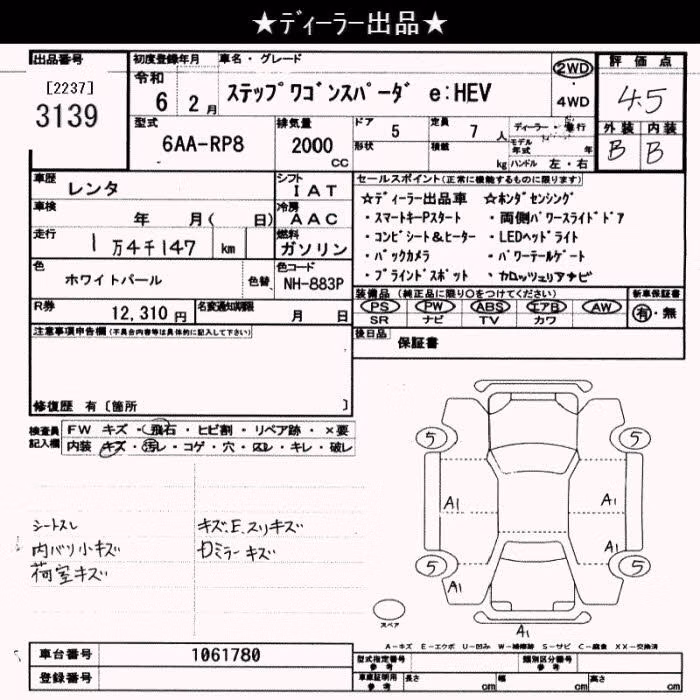 ★ディーラー出品★
出品番号
[2237]
3139
初度登録年月
令和
6 2月
車名・グレード
ステップワゴンスパーダ e:HEV
2WD
・
4WD
評価点
4.5
外装 内装
B B
型式
6AA-RP8
排気量
2000
cc
ドア 5
定員 7 人
形状
積載 kg
ディーラー・並行
モデル年式 年
ハンドル 左・右
車歴
レンタ
シフト
IAT
車検
年 月( 日)
冷房
AAC
走行
1万4千147 km
燃料
ガソリン
色
ホワイトパール
色替
色コード
NH-883P
R券
12,310円
名変通知期限
月 日
セールスポイント(正常に機能するものに限ります)
☆ディーラー出品車 ☆ホンダセンシング
・スマートキーPスタート ・両側パワースライドドア
・コンビシート&ヒーター ・LEDヘッドライト
・バックカメラ ・パワーテールゲート
・ブラインドスポット ・カロッツェリアナビ
装備品(純正品に限り○をつけてください)
PS PW ABS エアB AW
SR ナビ TV カワ
新車保証書
有・無
後日品
保証書
注意事項申告欄(不具合内容等は具体的に記入して下さい)
修復歴 有〔箇所 〕
検査員記入欄
FW キズ・飛石・ヒビ割・リペア跡・×要
内装 キズ・汚レ・コゲ・穴・スレ・キレ・破レ
シートスレ
内バリ小キズ
荷室キズ
キズ、E、スリキズ
Dミラーキズ
5
5
A1
A1
5
A1
A1
5
スペア
A1
A-キズ E-エクボ U-凹み W-補修跡 S-サビ C-腐食 XX-交換済
車台番号
1061780
登録番号
型式指定番号
参考
類別区分番号
参考
車庫証明用
参考
長さ cm
幅 cm
高さ cm